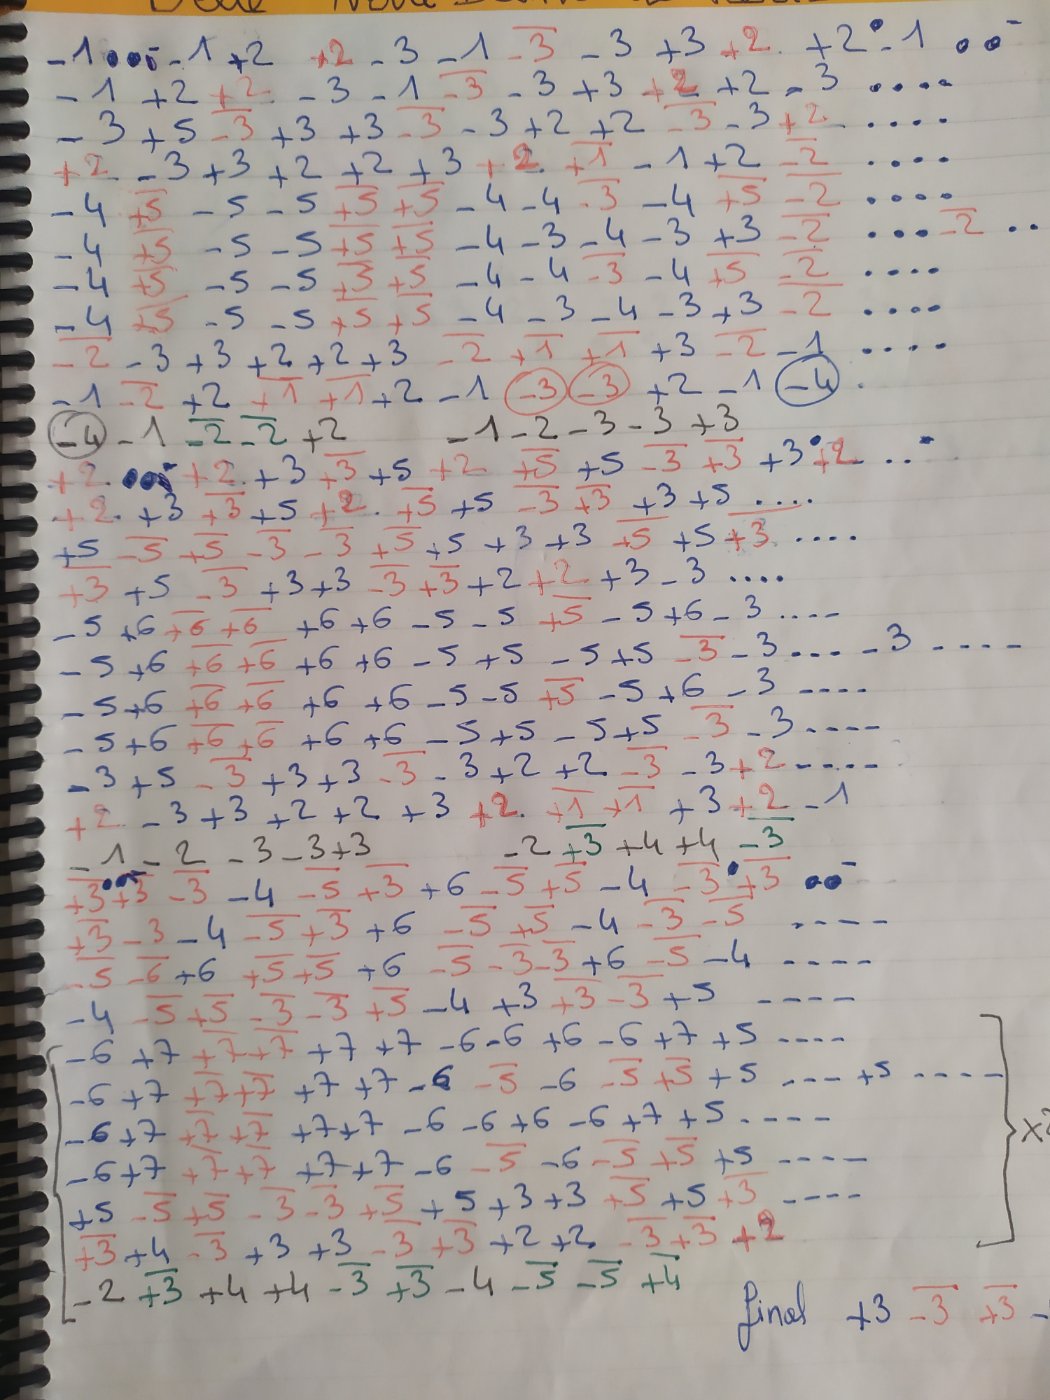 -1 •••- -1 +2 +2 -3 -1 -3̅ -3 +3 +2 +2 • -1 •••-
-1 +2 +2 -3 -1 -3̅ -3 +3 +2 +2 -3 ....
-3 +5 -3̅ +3 +3 -3̅ -3 +2 +2 -3̅ -3 +2 ....
+2 -3 +3 +2 +2 +3 +2 +1̅ -1 +2 -2̅ ....
-4 +5̅ -5 -5 +5̅ +5̅ -4 -4 -3̅ -4 +5̅ -2̅ ....
-4 +5̅ -5 -5 +5̅ +5̅ -4 -3 -4 -3 +3 -2̅ ... -2̅ ..
-4 +5̅ -5 -5 +5̅ +5̅ -4 -4 -3̅ -4 +5̅ -2̅ ....
-4 +5̅ -5 -5 +5̅ +5̅ -4 -3 -4 -3 +3 -2̅ ....
-2̅ -3 +3 +2 +2 +3 -2̅ +1̅ +1̅ +3 -2̅ -1 ....
-1 -2̅ +2 +1̅ +1̅ +2 -1 -3 -3 +2 -1 -4 .
-4 -1 -2̅ -2̅ +2 -1 -2 -3 -3 +3
+2 •••- +2 +3 +3̅ +5 +2 +5̅ +5 -3̅ +3̅ +3 • +2 ..-
+2 +3 +3̅ +5 +2 +5̅ +5 -3̅ +3̅ +3 +5 ....
+5 -5̅ +5̅ -3̅ -3̅ +5̅ +5 +3 +3 +5̅ +5 +3̅ ....
+3̅ +5 -3̅ +3 +3 -3̅ +3̅ +2 +2 +3 -3 ....
-5 +6 +6̅ +6̅ +6 +6 -5 -5 +5̅ -5 +6 -3 ....
-5 +6 +6̅ +6̅ +6 +6 -5 +5 -5 +5 -3̅ -3 .... -3 ....
-5 +6 +6̅ +6̅ +6 +6 -5 -5 +5̅ -5 +6 -3 ....
-5 +6 +6̅ +6̅ +6 +6 -5 +5 -5 +5 -3̅ -3 ....
-3 +5 -3̅ +3 +3 -3̅ -3 +2 +2 -3̅ -3 +2 ....
+2 -3 +3 +2 +2 +3 +2 +1̅ +1̅ +3 +2 -1
-1 -2 -3 -3 +3 -2 +3̅ +4 +4 -3̅
+3̅ ••- +3 -3̅ -4 -5̅ +3̅ +6 -5̅ +5̅ -4 -3̅ • +3̅ ••-
+3̅ -3 -4 -5̅ +3̅ +6 -5̅ +5̅ -4 -3̅ -5̅ ....
-5̅ -6̅ +6 +5̅ +5̅ +6 -5̅ -3̅ -3̅ +6 -5̅ -4 ....
-4 -5̅ +5̅ -3̅ -3̅ +5̅ -4 +3 +3̅ -3̅ +5 ....
-6 +7 +7̅ +7̅ +7 +7 -6 -6 +6 -6 +7 +5 ....
-6 +7 +7̅ +7̅ +7 +7 -6 -5̅ -6 -5̅ +5̅ +5 .... +5 ....
-6 +7 +7̅ +7̅ +7 +7 -6 -6 +6 -6 +7 +5 ....
-6 +7 +7̅ +7̅ +7 +7 -6 -5̅ -6 -5̅ +5̅ +5 ....
+5 -5̅ +5̅ -3̅ -3̅ +5̅ +5 +3 +3 +5̅ +5 +3̅ ....
+3̅ +4 -3̅ +3 +3 -3̅ +3̅ +2 +2 -3̅ +3̅ +2
-2 +3̅ +4 +4 -3̅ +3̅ -4 -5̅ -5̅ +4̅
final +3 -3̅ +3̅